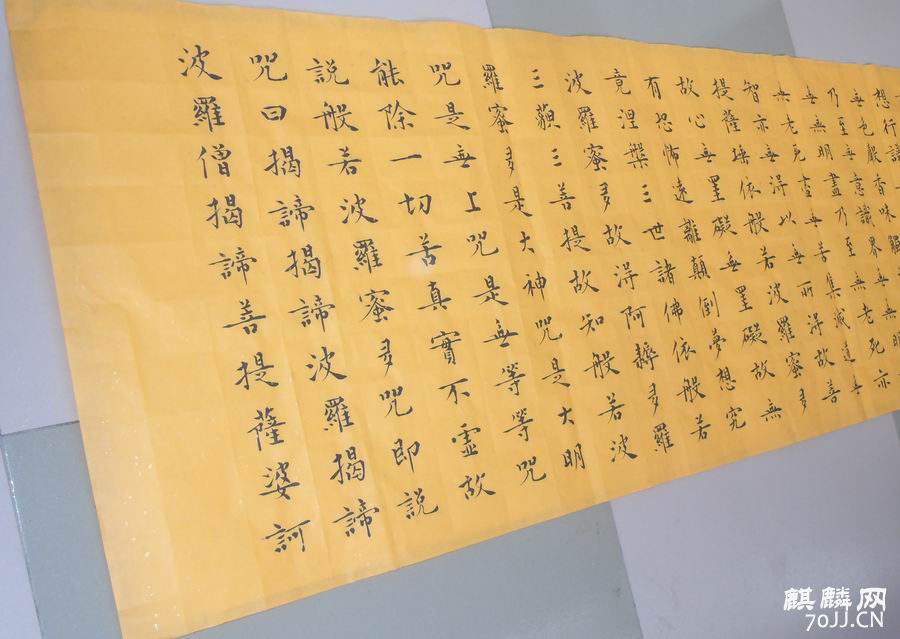 想行
無色聲香味
乃至無意識界無無明
無無明盡乃至無老死亦
無老死盡無苦集滅道無
智亦無得以無所得故菩
提薩埵依般若波羅蜜多
故心無罣礙無罣礙故無
有恐怖遠離顛倒夢想究
竟涅槃三世諸佛依般若
波羅蜜多故得阿耨多羅
三藐三菩提故知般若波
羅蜜多是大神咒是大明
咒是無上咒是無等等咒
能除一切苦真實不虛故
說般若波羅蜜多咒即說
咒曰揭諦揭諦波羅揭諦
波羅僧揭諦菩提薩婆訶
麒麟网
70JJ.CN